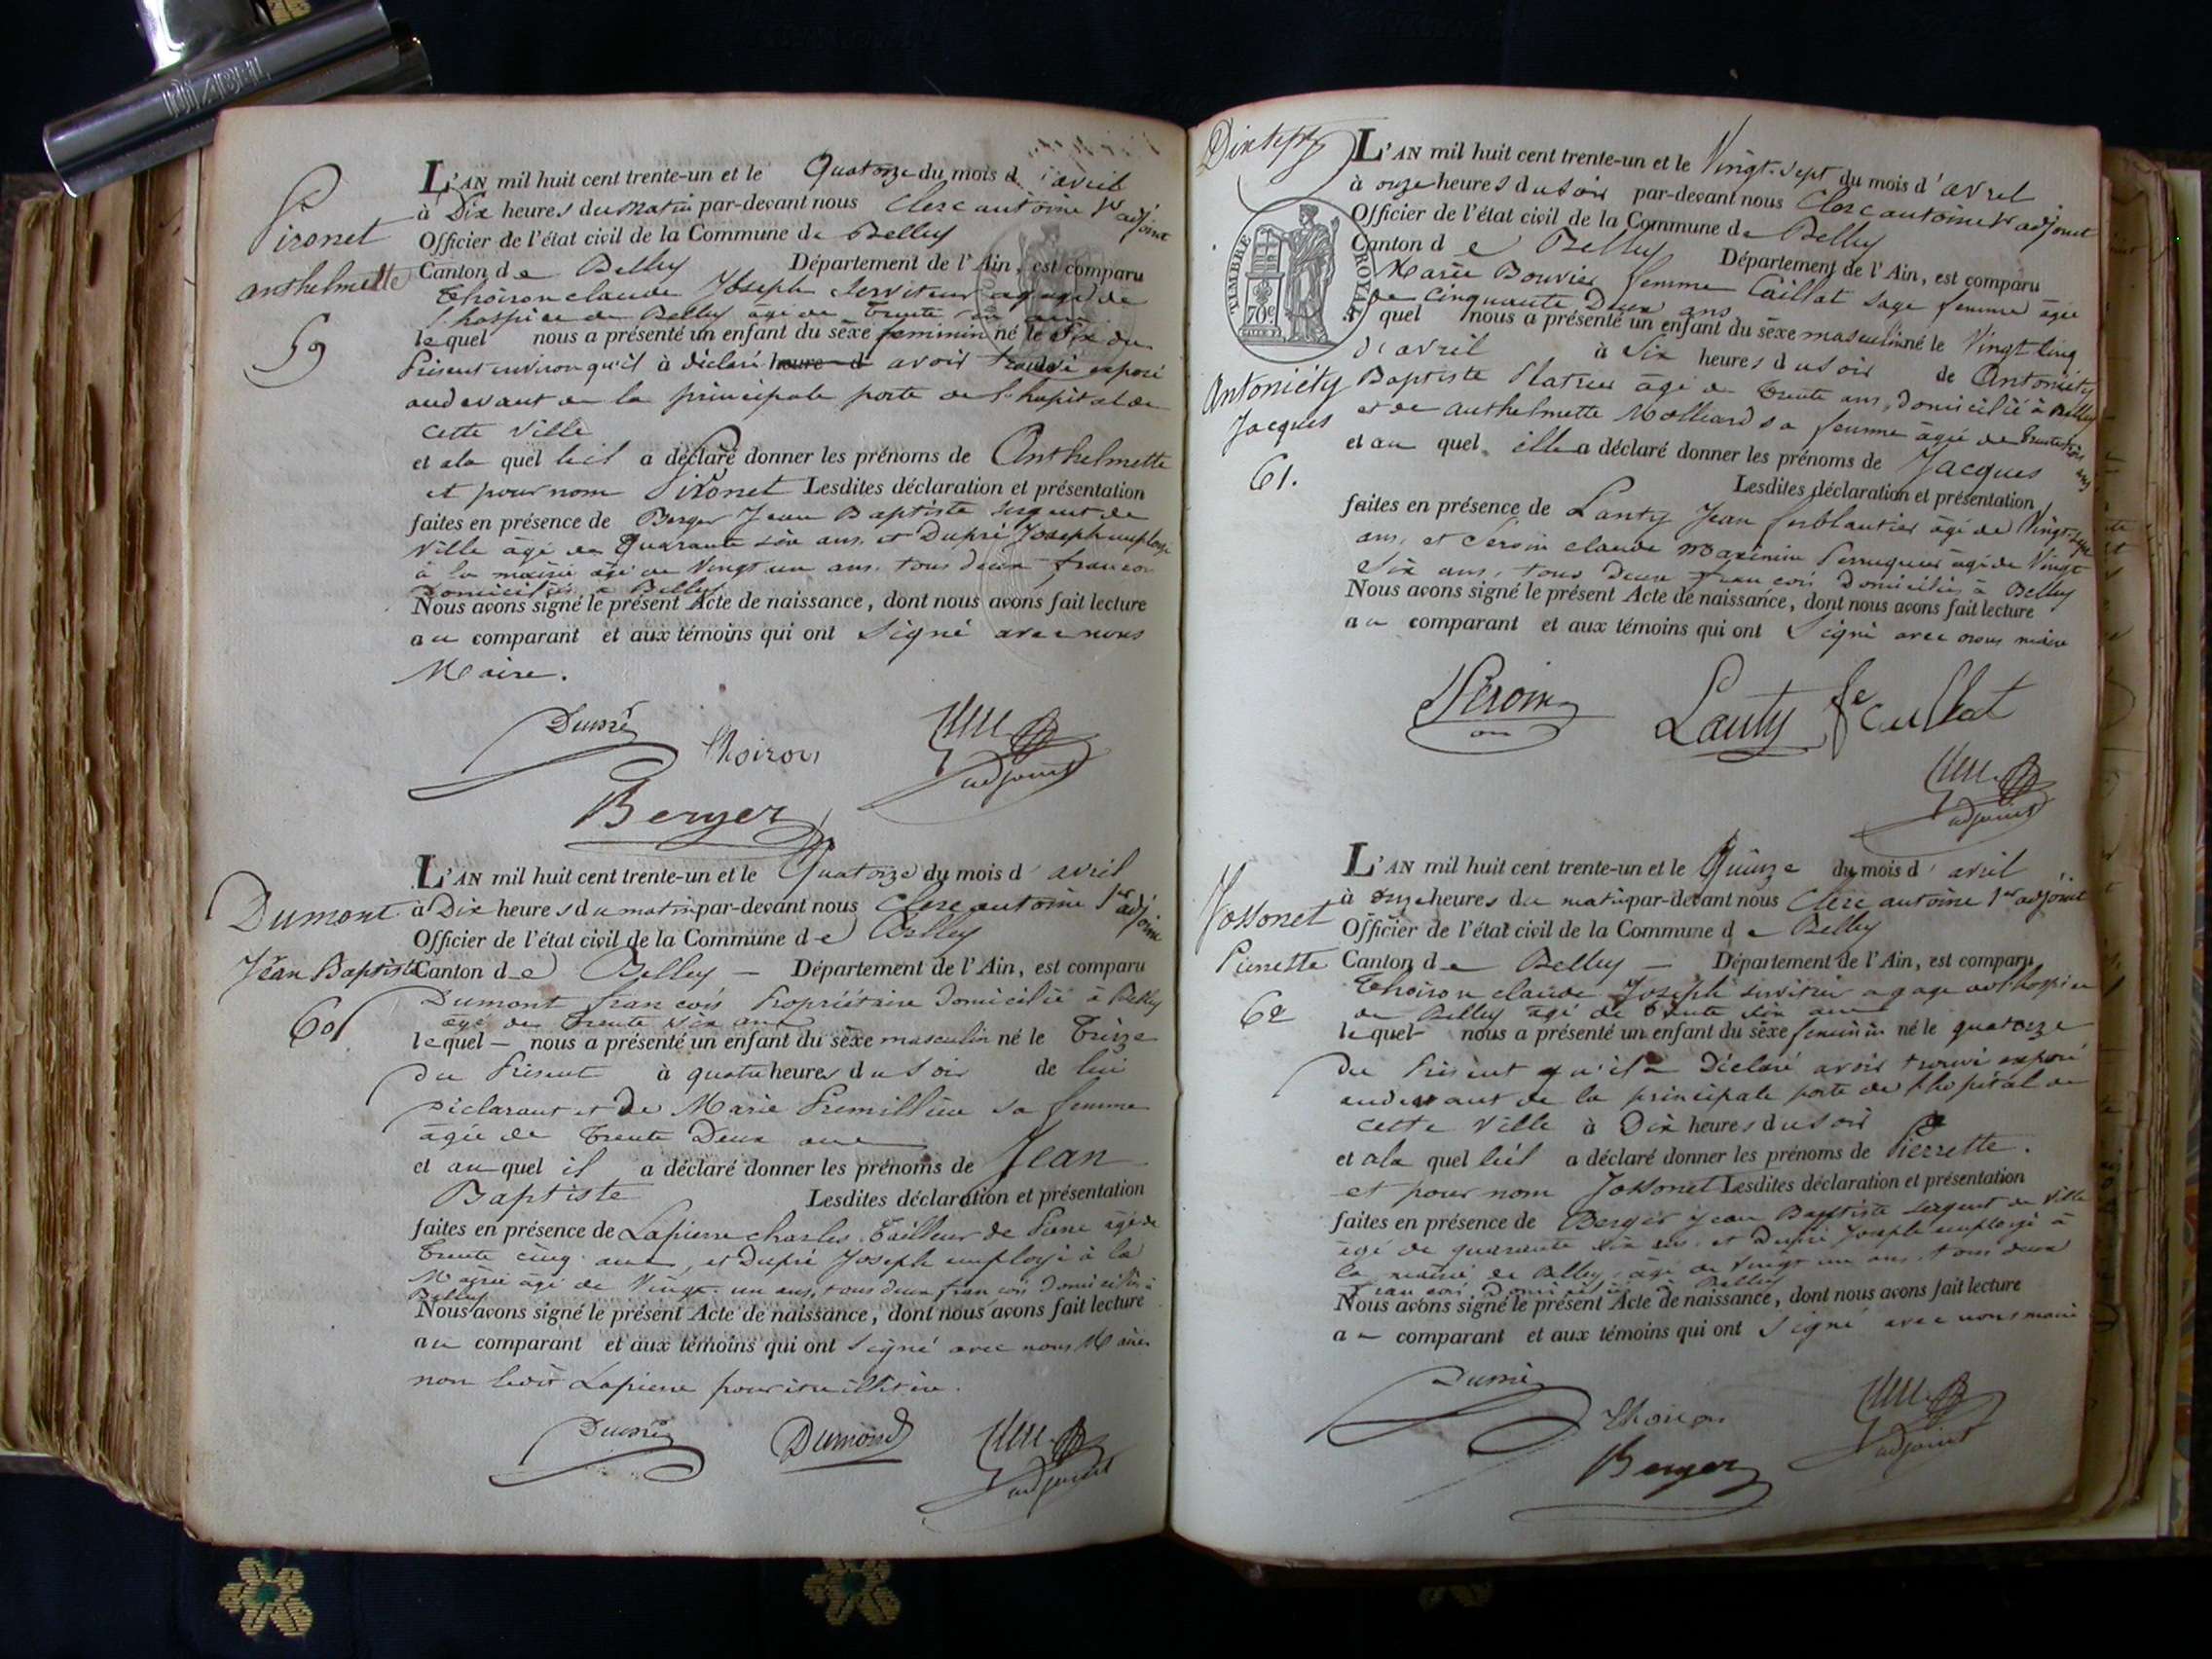 DIABEL
Pironet
anthelmette
59
L'AN mil huit cent trente-un et le Quatorze du mois d'avril
à Dix heures du matin par-devant nous Clerc antoine 1er adjoint
Officier de l'état civil de la Commune de Belley
Canton de Belley Département de l'Ain, est comparu
Thoiron claude Joseph serviteur a gage de
l'hospice de Belley agé de trente six ans
lequel nous a présenté un enfant du sexe feminin né le Six du
Présent environ qu'il à déclaré heure d avoir trouvé exposé
audevant de la principale porte de l'hopital de
cette Ville
et ala quel leil a déclaré donner les prénoms de Anthelmette
et pour nom Pironet Lesdites déclaration et présentation
faites en présence de Berger Jean Baptiste sergent de
Ville âgé de Quarante six ans et Dupré Joseph employé
à la mairie âgé de Vingt un ans, tous deux francois
domiciliés a Belley
Nous avons signé le présent Acte de naissance, dont nous avons fait lecture
au comparant et aux témoins qui ont Signé avec nous
Maire.
Dupré Thoiron
Berger adjoint
Dumont
Jean Baptiste
60
L'AN mil huit cent trente-un et le Quatorze du mois d'avril
à Dix heures du matin par-devant nous Clerc antoine 1er adjoint
Officier de l'état civil de la Commune de Belley
Canton de Belley — Département de l'Ain, est comparu
Dumont francois Propriétaire Domicilié à Belley
âgé de trente six ans
lequel — nous a présenté un enfant du sexe masculin né le Treize
du Présent à quatre heures du Soir de lui
Déclarant et de Marie Premillieu sa femme
âgée de trente Deux ans
et au quel il a déclaré donner les prénoms de Jean
Baptiste Lesdites déclaration et présentation
faites en présence de Lapierre charles Tailleur de Pierre âgé de
trente cinq ans, et Dupré Joseph employé à la
Mairie âgé de Vingt un ans, tous deux francois domiciliés à
Belley
Nous avons signé le présent Acte de naissance, dont nous avons fait lecture
au comparant et aux témoins qui ont Signé avec nous Maire
non ledit Lapierre pour être illitéré.
Dupré Dumond adjoint
Dix sept
TIMBRE ROYAL
70c
Antoniéty
Jacques
61.
L'AN mil huit cent trente-un et le Vingt-sept du mois d'avril
à onze heures du soir par-devant nous Clerc antoine 1er adjoint
Officier de l'état civil de la Commune de Belley
Canton de Belley Département de l'Ain, est comparu
Marie Bouvier femme Caillat sage femme âgée
de cinquante Deux ans
quel nous a présenté un enfant du sexe masculin né le Vingt Cinq
d'avril à Six heures du soir de Antoniéty
Baptiste Platrier âgé de trente ans, domicilié à Belley
et de Anthelmette Molliard sa femme âgée de trente trois ans
et au quel elle a déclaré donner les prénoms de Jacques
Lesdites déclaration et présentation
faites en présence de Lanty Jean ferblantier âgé de Vingt-sept
ans, et claude maximin Perruquier âgé de Vingt
Six ans, tous deux francois domiciliés à Belley
Nous avons signé le présent Acte de naissance, dont nous avons fait lecture
au comparant et aux témoins qui ont Signé avec nous maire
Lanty fe Caillat
adjoint
Jossonet
Pierrette
62
L'AN mil huit cent trente-un et le Quinze du mois d'avril
à onze heures du matin par-devant nous Clerc antoine 1er adjoint
Officier de l'état civil de la Commune de Belley
Canton de Belley — Département de l'Ain, est comparu
Thoiron claude Joseph serviteur a gage de l'hospice
de Belley âgé de trente six ans
lequel nous a présenté un enfant du sexe feminin né le quatorze
du Présent qu'il a Déclaré avoir trouvé exposé
audevant de la principale porte de l'hopital de
cette Ville à Dix heures du Soir
et ala quel leil a déclaré donner les prénoms de Pierrette.
et pour nom Jossonet Lesdites déclaration et présentation
faites en présence de Berger Jean Baptiste sergent de Ville
âgé de quarante six ans et Dupré Joseph employé à
la mairie de Belley, âgé de Vingt un ans, tous deux
francois domiciliés à Belley
Nous avons signé le présent Acte de naissance, dont nous avons fait lecture
au comparant et aux témoins qui ont Signé avec nous maire
Dupré Thoiron
Berger adjoint